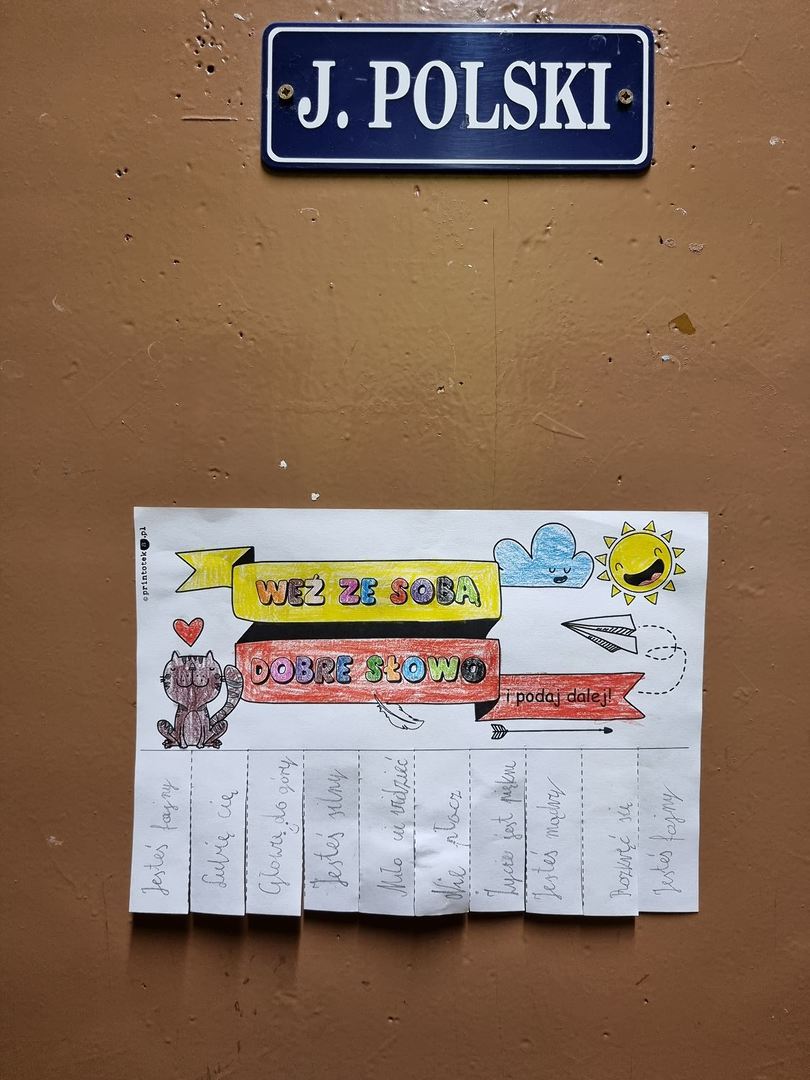 J. POLSKI
©printoteka.pl
WEŹ ZE SOBĄ
DOBRE SŁOWO
i podaj dalej!
Jesteś fajny
Lubię cię
Głowa do góry
Jesteś silny
Miło cię widzieć
Nie płacz
Życie jest piękne
Jesteś mądry
się
Jesteś fajny